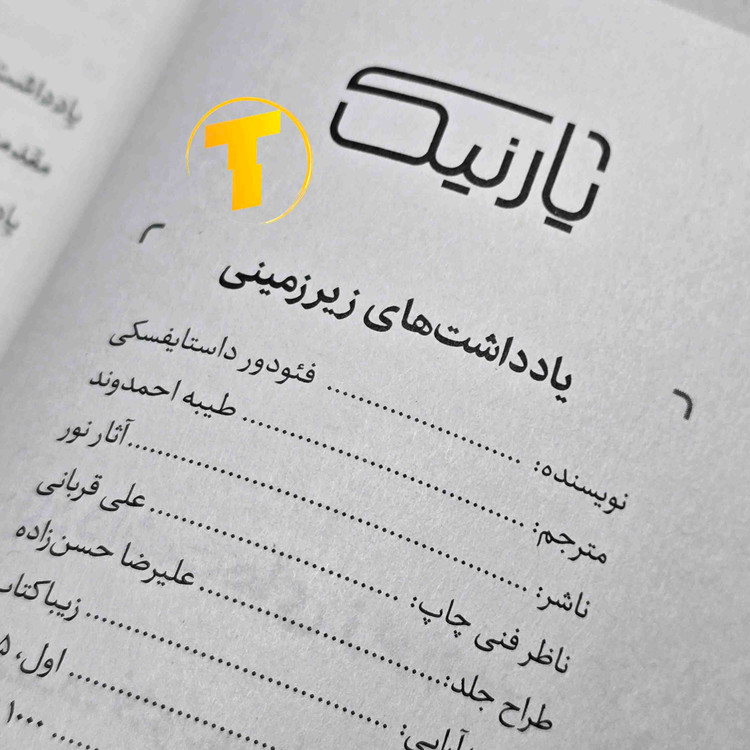 یارنیک
T
یادداشت‌های زیرزمینی
نویسنده: ........ فئودور داستایفسکی
مترجم: ........ طیبه احمدوند
ناشر: ........ آثار نور
ناظر فنی چاپ: ........ علی قربانی
طراح جلد: ........ علیرضا حسن‌زاده
........ زیباکتاب
اول، ۵
۱۰۰۰